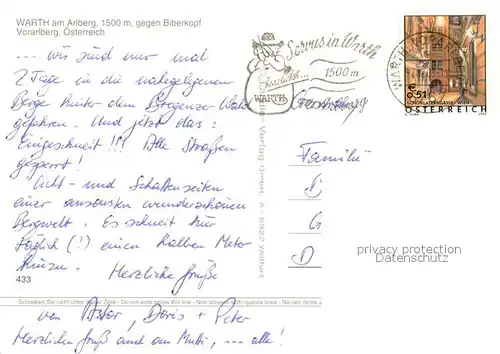 WARTH am Arlberg, 1500 m, gegen Biberkopf
Vorarlberg, Österreich
... wir sind nur mal
2 Tage in die nahegelegenen
Berge hinter dem Bregenzer Wald
gefahren. Und jetzt das:
Eingeschneit!!! Alle Straßen
gesperrt!
Licht- und Schattenseiten
einer ansonsten wunderschönen
Bergwelt. Es schneit hier
täglich (!) einen halben Meter
hinzu. Herzliche Grüße
433
Schreiben Sie nicht unter dieser Zeile - Do not write below this line - Non scrivere sotto questa linea - Ne rien
von Astor, Doris + Peter
Herzlichen Gruß auch an Mutti, ... alle!
Servus in Warth
1500 m
WARTH
Vorarlberg
WARTH
€ 0,51
SCHÖNLATERNGASSE · WIEN
ÖSTERREICH
Verlag GmbH, A - 6922 Wolfurt
Familie
D
G
D
privacy protection
DELCAMPE.NET